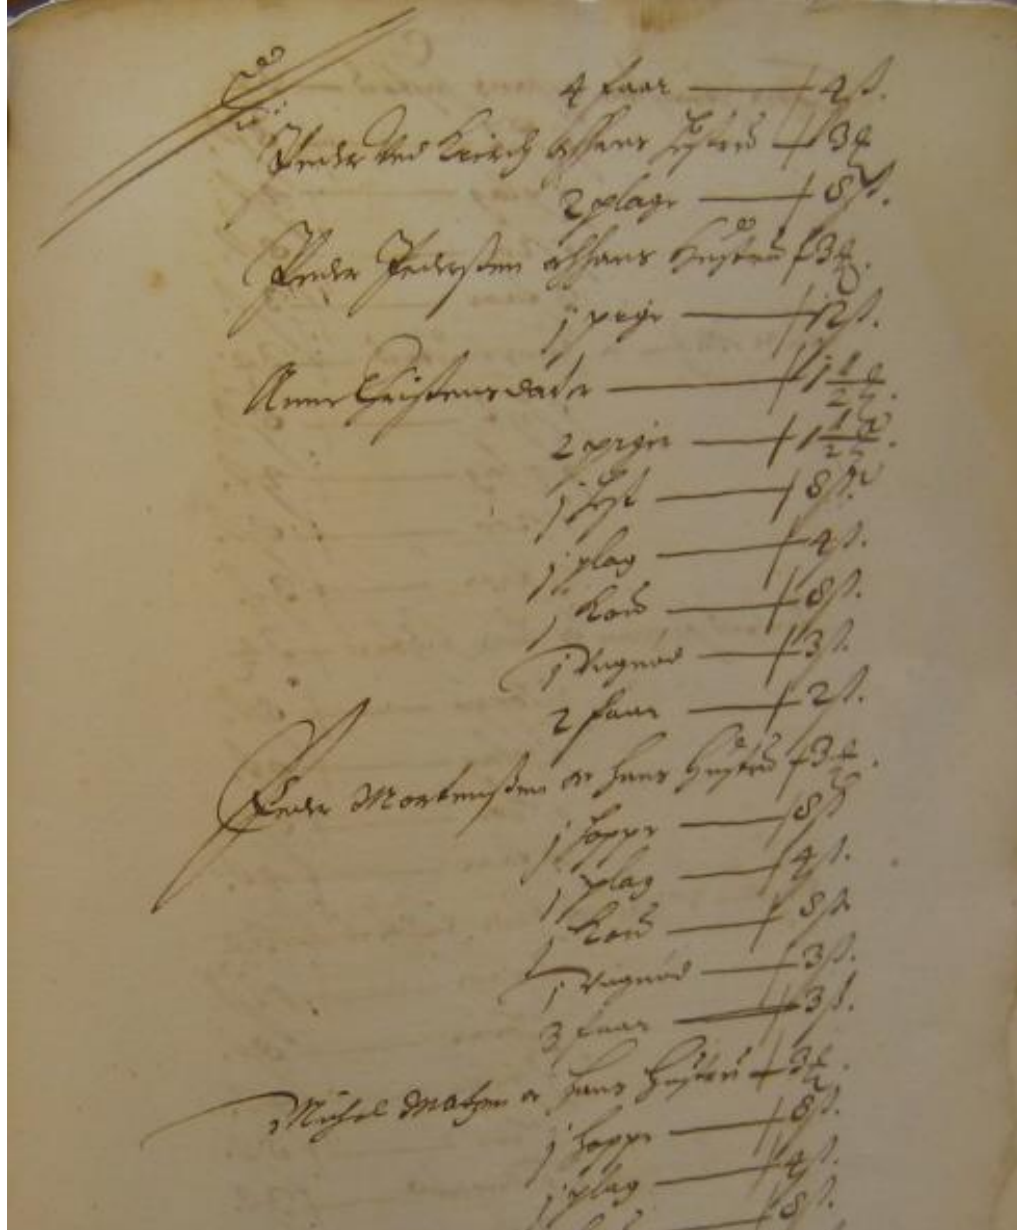 4 faar — 4 ß.
Peder Ved Kirch oc hans hustru — 3 ₰
2 plage — 8 ß.
Peder Pedersßen oc hans hustru 3 ₰.
j pige — 12 ß.
Anne Christensdater — 1½ ₰.
2 piger — 1½ ₰.
j hest — 8 ß.
j plag — 4 ß.
j koe — 8 ß.
j Ungnød — 3 ß.
2 faar — 2 ß.
Peder Mortensßen oc hans hustru 3 ₰.
j hoppe — 8 ß
j plag — 4 ß.
j koe — 8 ß
j Ungnød — 3 ß.
3 faar — 3 ß.
Michel Matzen oc hans hustru — 3 ₰.
j hoppe — 8 ß.
j plag — 4 ß.
8 ß.